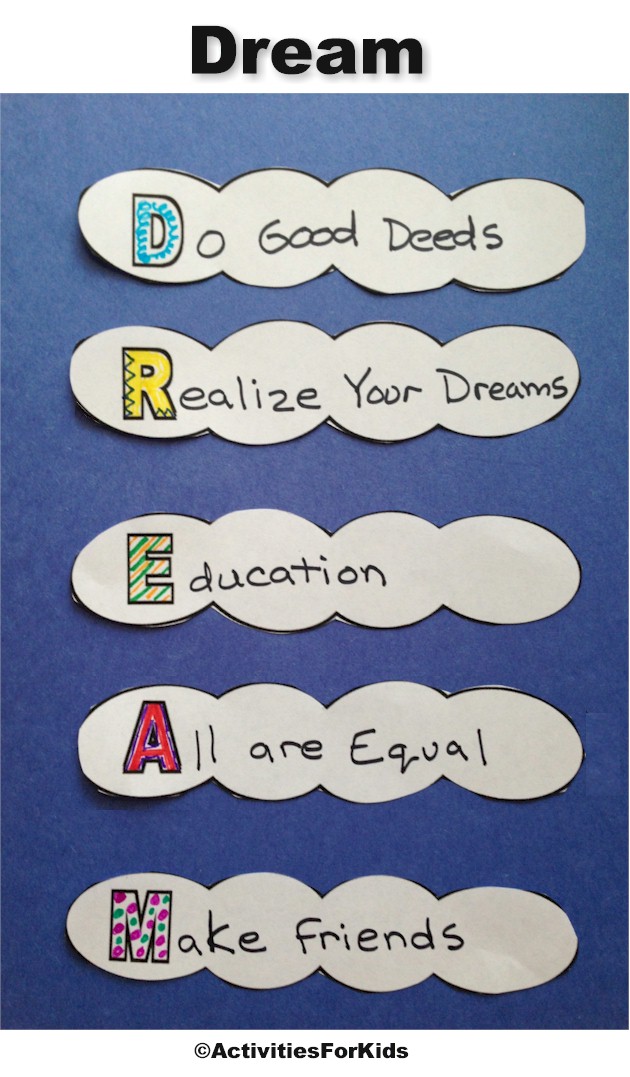 Dream
Do Good Deeds
Realize Your Dreams
Education
All are Equal
Make Friends
©ActivitiesForKids